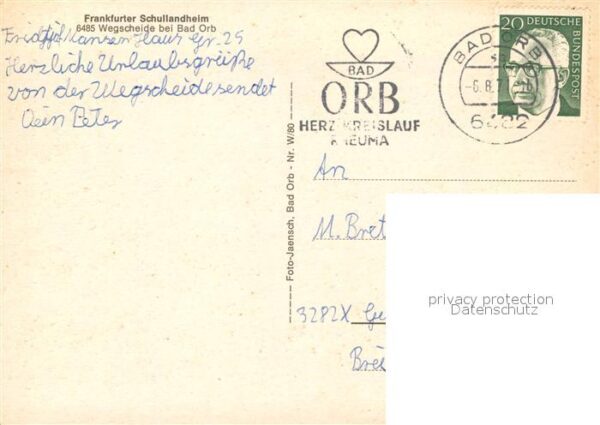 Frankfurter Schullandheim
6485 Wegscheide bei Bad Orb
Fridtjof Nansen Haus Gr. 25
Herzliche Urlaubsgrüße
von der Wegscheide sendet
Dein Peter
BAD
ORB
HERZ KREISLAUF
RHEUMA
BAD ORB
-6.8.7
6482
20 DEUTSCHE BUNDESPOST
Foto-Jaensch, Bad Orb - Nr. W/80
An
M. Bret
3282X
privacy protection
Datenschutz